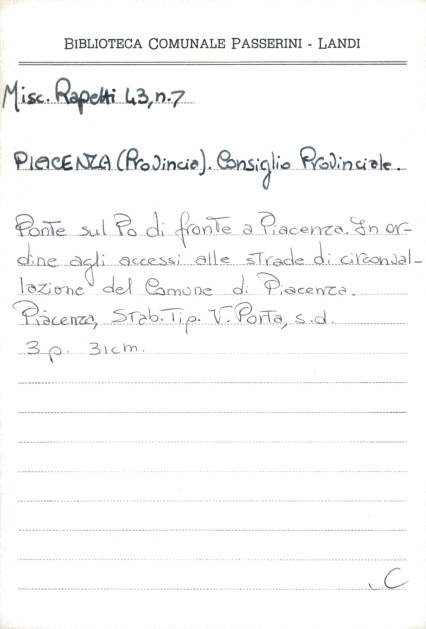 BIBLIOTECA COMUNALE PASSERINI - LANDI
Misc. Rapetti 43, n.7
PIACENZA (Provincia). Consiglio Provinciale.
Ponte sul Po di fronte a Piacenza. In or-
dine agli accessi alle strade di circonval-
lazione del Comune di Piacenza.
Piacenza, Stab. Tip. V. Porta, s.d.
3 p. 31cm.
C